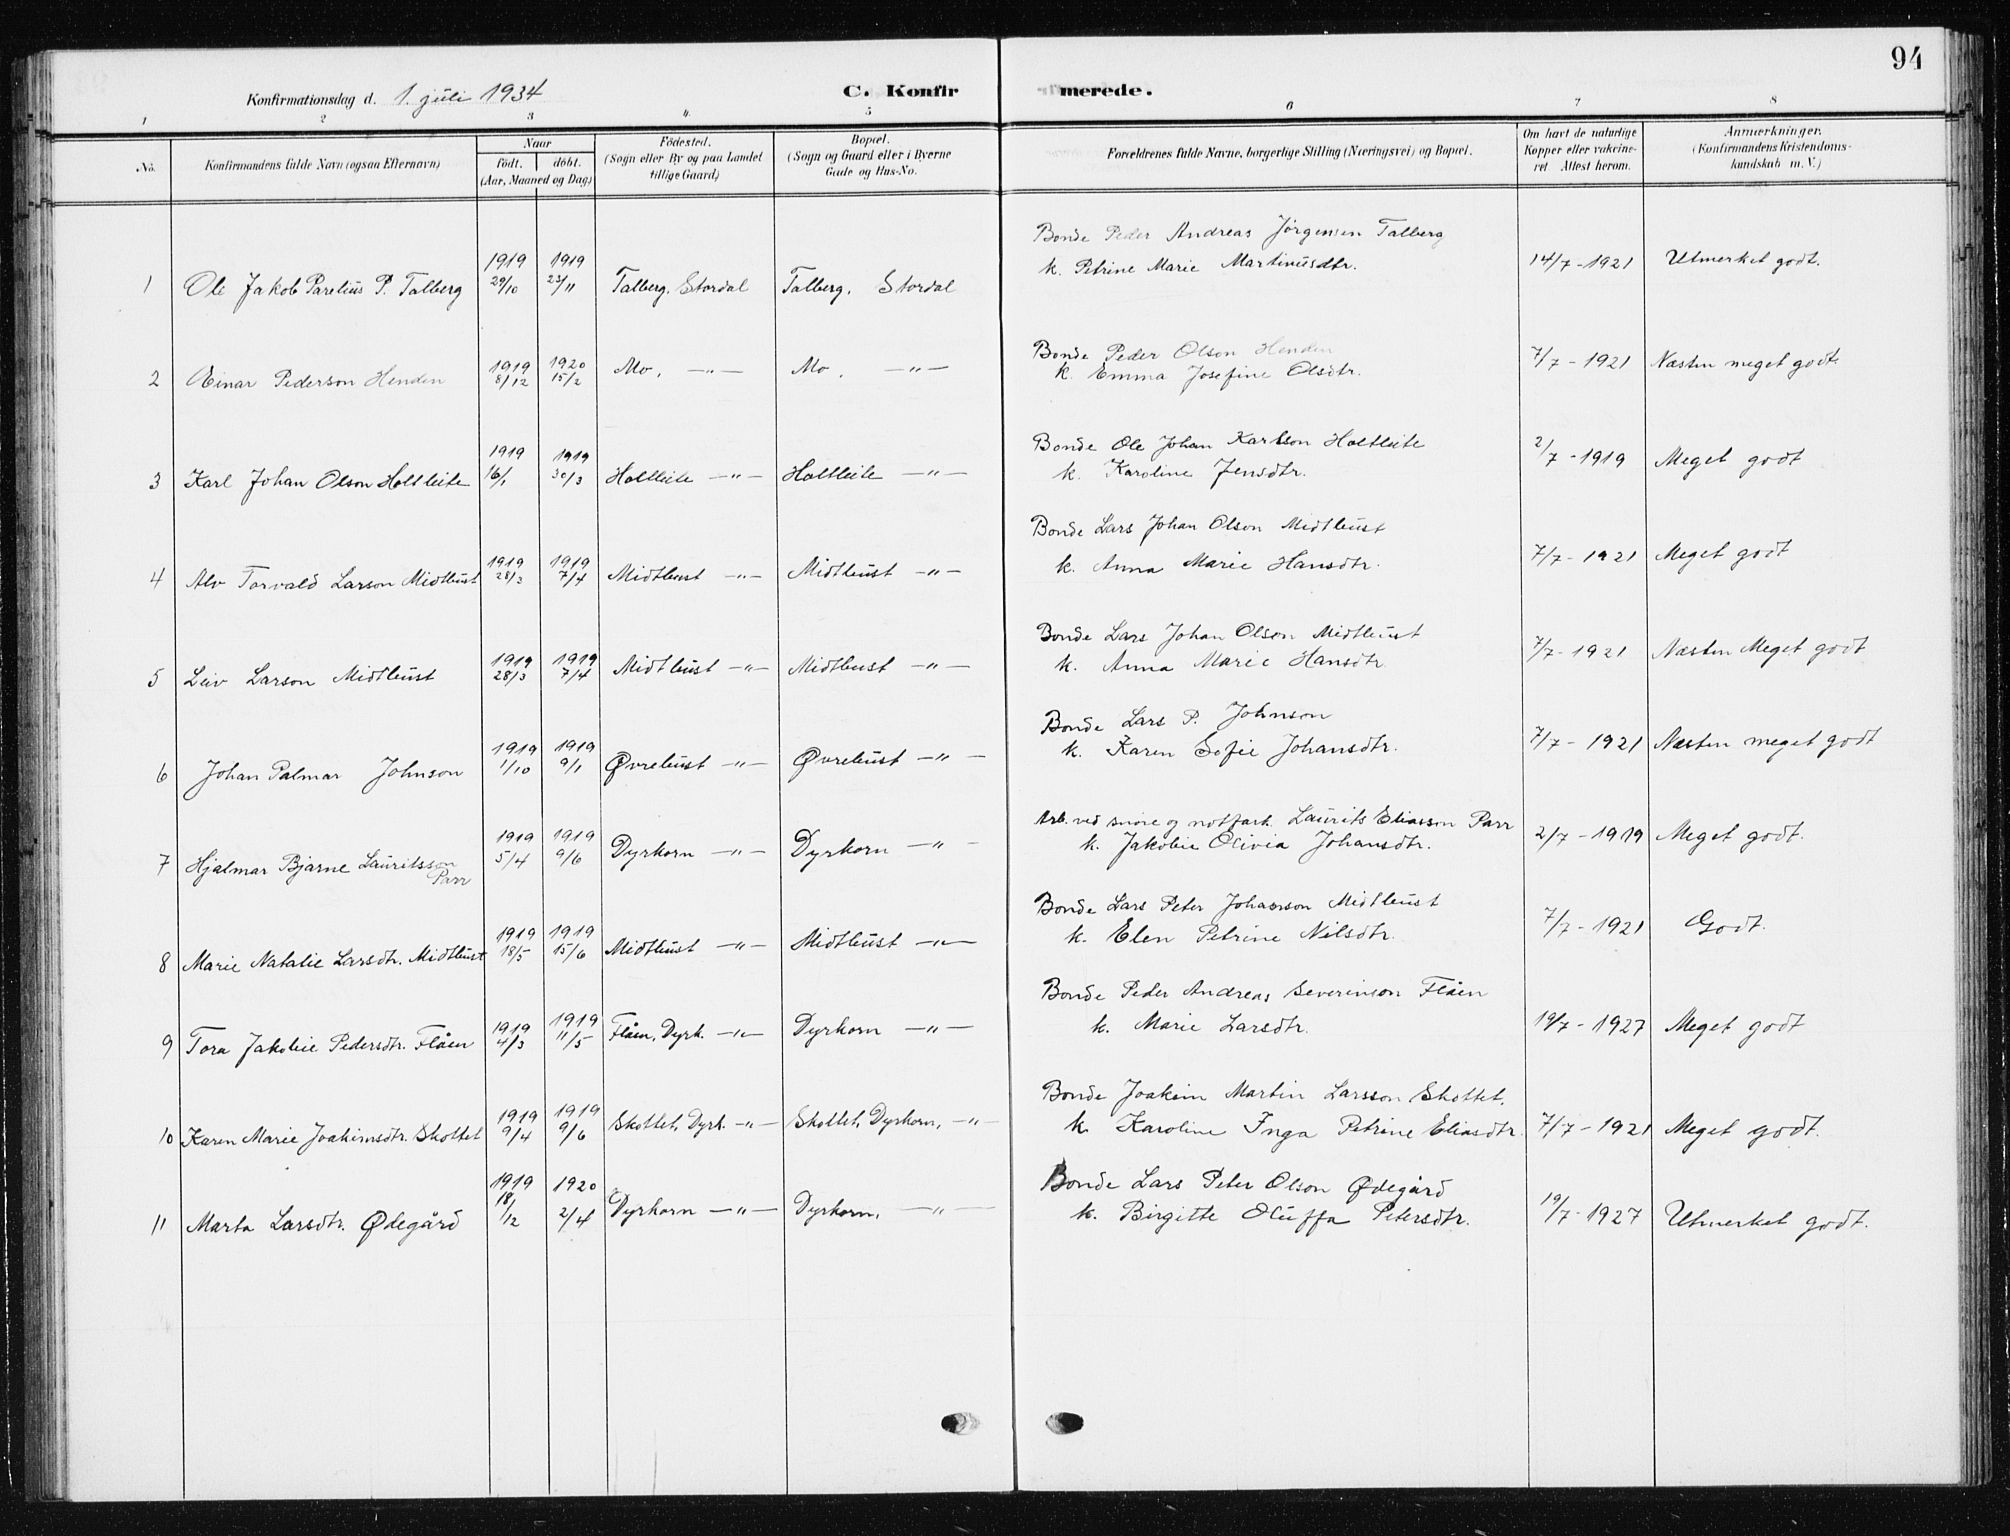 94
Konfirmationsdag d. 1. juli 1934
C. Konfirmerede.
1 2 3 4 5 6 7 8
No. Konfirmandens fulde Navn (ogsaa Efternavn) Naar født. døbt. (Aar, Maaned og Dag) Fødested. (Sogn eller By og paa Landet tillige Gaard) Bopæl. (Sogn og Gaard eller i Byerne Gade og Hus-No. Forældrenes fulde Navne, borgerlige Stilling (Næringsvei) og Bopæl. Om havt de naturlige Kopper eller vakcineret. Attest herom. Anmerkninger. (Konfirmandens Kristendomskundskab m. V.)
1 Ole Jakob Parelius P. Talberg 1919 29/10 1919 23/11 Talberg, Stordal Talberg, Stordal Bonde Peder Andreas Jørgensen Talberg
k. Petrine Marie Martinusdtr. 14/7-1921 Utmerket godt.
2 Einar Pederson Henden 1919 8/12 1920 15/2 Mo, —"— Mo, —"— Bonde Peder Olson Henden
k. Emma Josefine Olsdtr. 7/7-1921 Næsten meget godt.
3 Karl Johan Olson Holtleite 1919 16/1 1919 30/3 Holtleite —"— Holtleite —"— Bonde Ole Johan Karlson Holtleite
k. Karoline Jensdtr. 2/7-1919 Meget godt
4 Alv Torvald Larson Midtbust 1919 28/3 1919 7/4 Midtbust —"— Midtbust —"— Bonde Lars Johan Olson Midtbust
k. Anna Marie Hansdtr. 7/7-1921 Meget godt
5 Leiv Larson Midtbust 1919 28/3 1919 7/4 Midtbust —"— Midtbust —"— Bonde Lars Johan Olson Midtbust
k. Anna Marie Hansdtr. 7/7-1921 Næsten Meget godt
6 Johan Palmar Johnson 1919 1/10 1919 9/1 Øvrebust —"— Øvrebust —"— Bonde Lars P. Johnson
k. Karen Sofie Johansdtr. 7/7-1921 Næsten meget godt
7 Hjalmar Bjarne Lauritsson Parr 1919 5/4 1919 9/6 Dyrkorn —"— Dyrkorn —"— Arb. ved snöre og notfabr. Laurits Eliasson Parr
k. Jakobie Olivia Johansdtr. 2/7-1919 Meget godt.
8 Marie Natalie Larsdtr. Midtbust 1919 18/5 1919 15/6 Midtbust —"— Midtbust —"— Bonde Lars Peter Johansson Midtbust
k. Elen Petrine Nilsdtr. 7/7-1921 Godt.
9 Tora Jakobie Pedersdtr. Flåen 1919 4/3 1919 11/5 Flåen, Dyrk. —"— Dyrkorn —"— Bonde Peder Andreas Severinson Flåen
k. Marie Larsdtr. 19/7-1927 Meget godt
10 Karen Marie Joakimsdtr. Skottet 1919 9/4 1919 9/6 Skottet, Dyrk. —"— Skottet, Dyrkorn, —"— Bonde Joakim Martin Larsson Skottet.
k. Karoline Inga Petrine Eliasdtr. 7/7-1921 Meget godt.
11 Marta Larsdtr. Ødegård 1919 18/12 1920 2/4 Dyrkorn —"— Dyrkorn, —"— Bonde Lars Peter Olson Ødegård
k. Birgitte Petersdtr. 19/7-1927 Utmerket godt.